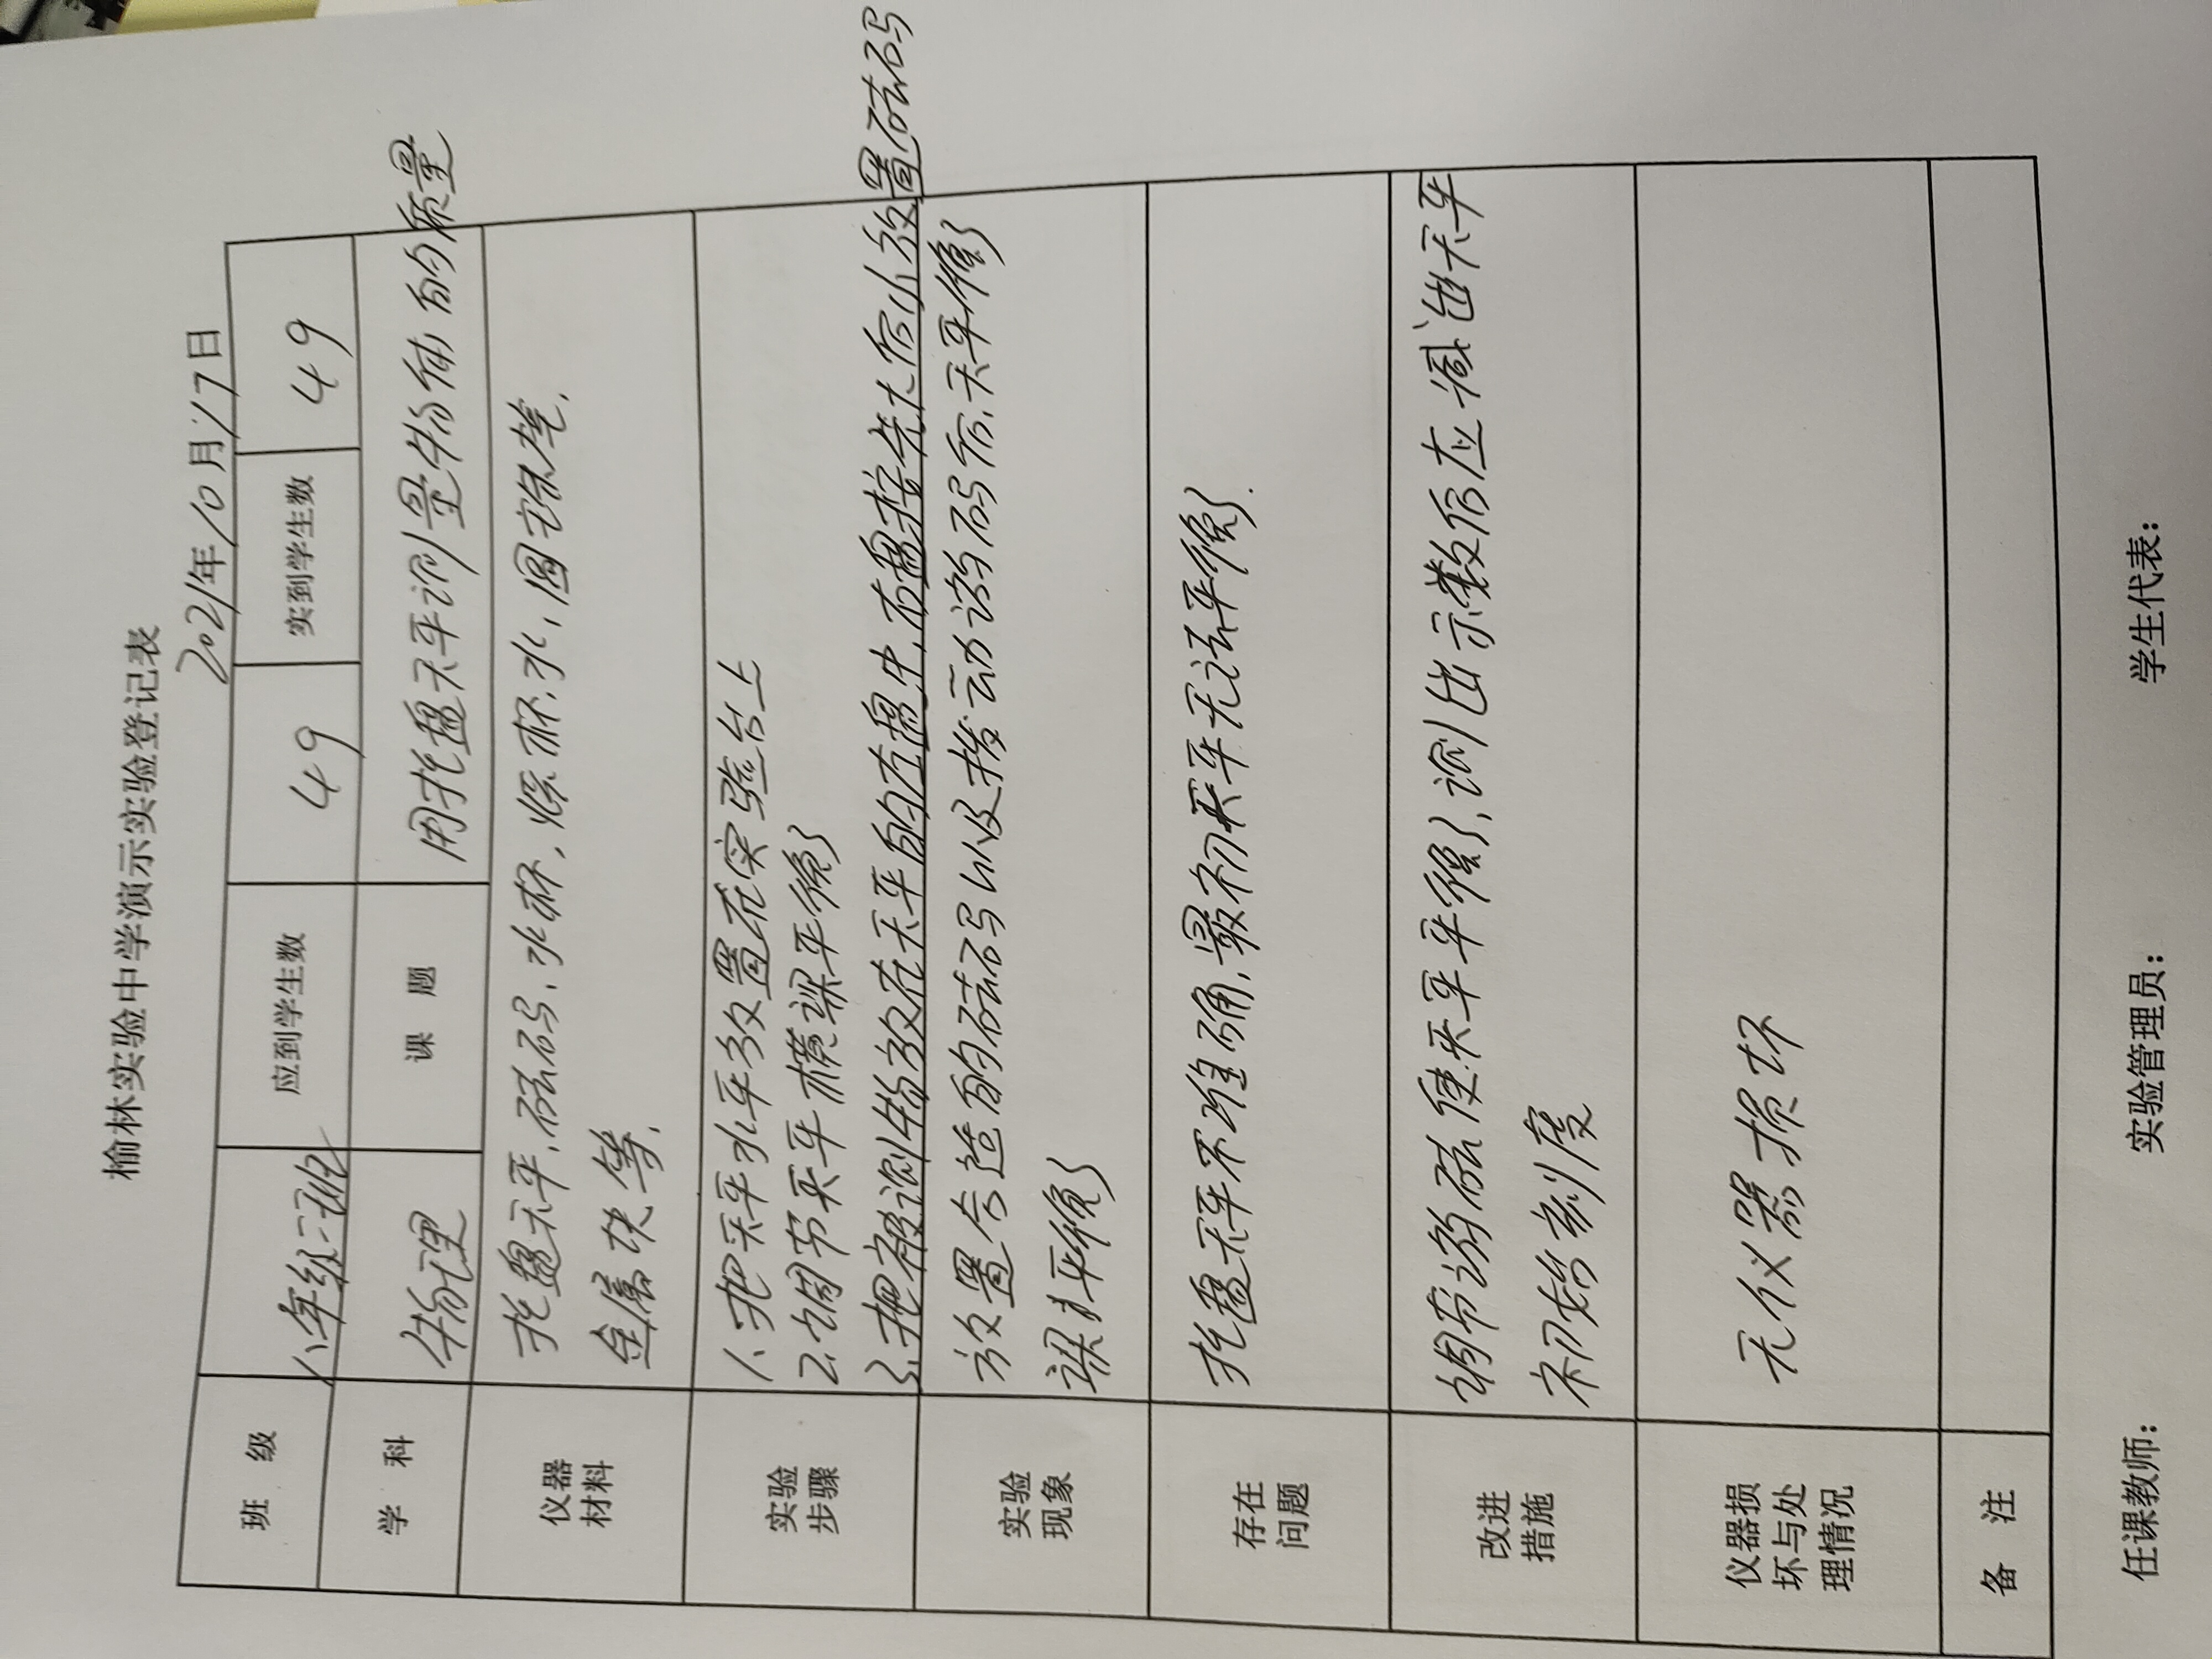 榆林实验中学演示实验登记表
2021年10月17日
班 级 八年级二班 应到学生数 49 实到学生数 49
学 科 物理 课 题 用托盘天平测量物体的质量
仪器
材料
托盘天平,砝码,水杯,烧杯,水,圆柱体,
金属块等.
实验
步骤
1.把天平水平放置在实验台上
2.调节天平横梁平衡
3.把被测物放在天平的左盘中,右盘按先大后小放置砝码
实验
现象
放置合适的砝码以及拨动游码后,天平横
梁平衡
存在
问题
托盘天平不准确,最初天平无法平衡.
改进
措施
调节游砝使天平平衡,测出示数后应减出天平
初始刻度
仪器损
坏与处
理情况
无仪器损坏
备 注
任课教师: 实验管理员: 学生代表: